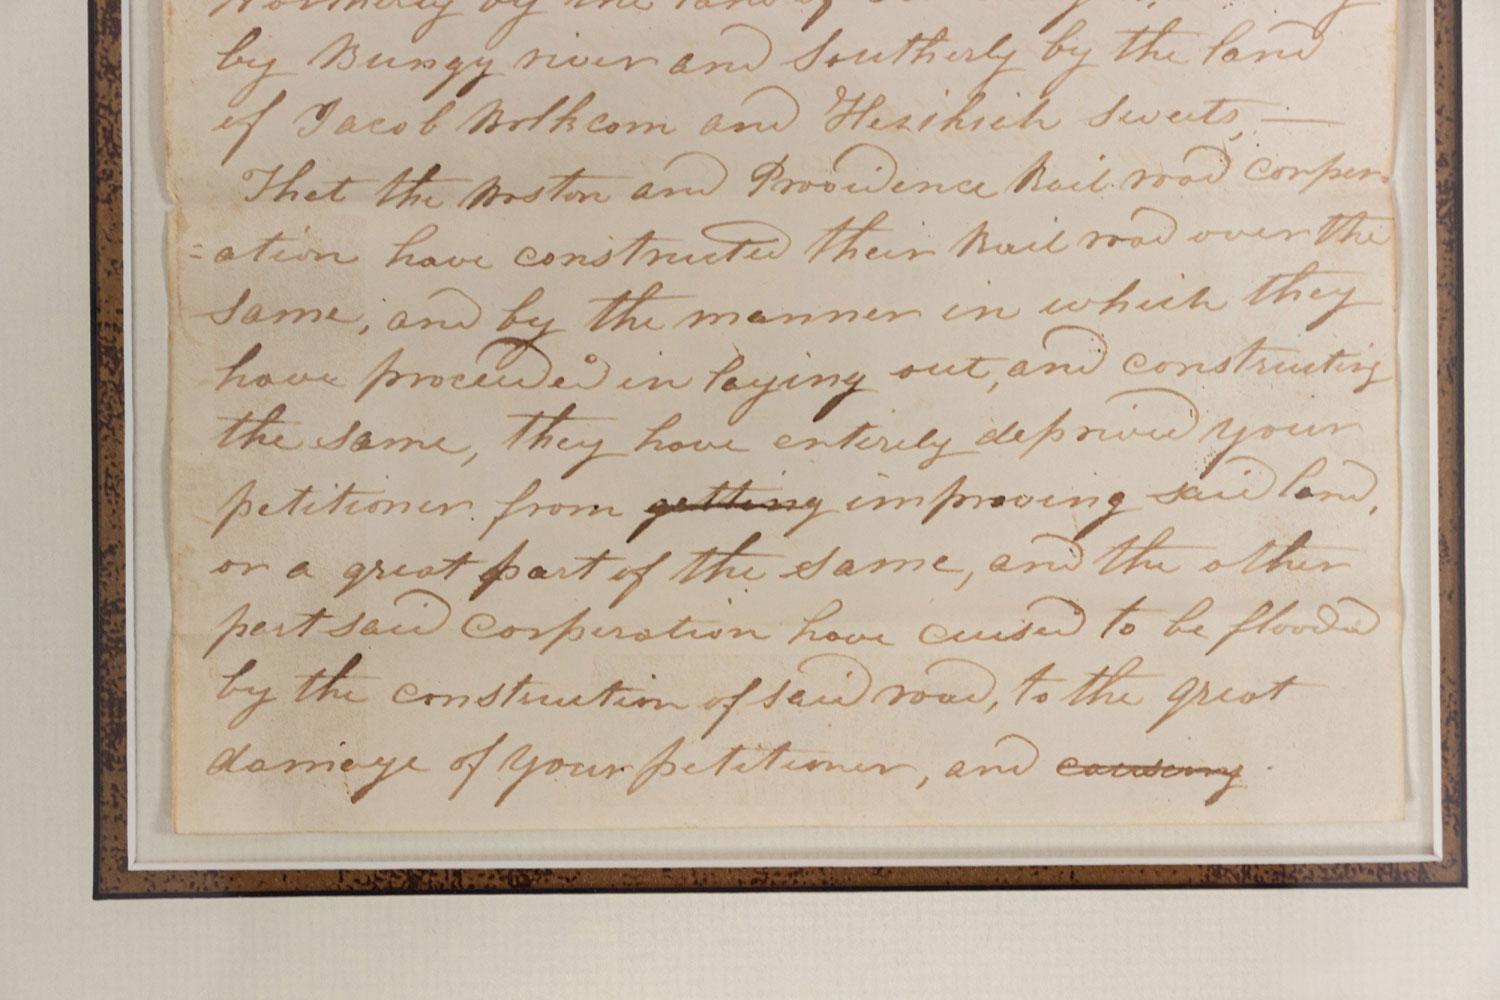 Northerly by the land of
by Bungy river and Southerly by the land
of Jacob Wolkcom and Hezikiah Sweets, —
That the Boston and Providence Rail road corper-
=ation have constructed their Rail road over the
same, and by the manner in which they
have proceeded in laying out, and constructing
the same, they have entirely deprived your
petitioner from getting improving said land,
or a great part of the same, and the other
part said Corperation have caused to be flooded
by the construction of said road, to the great
damage of your petitioner, and causing